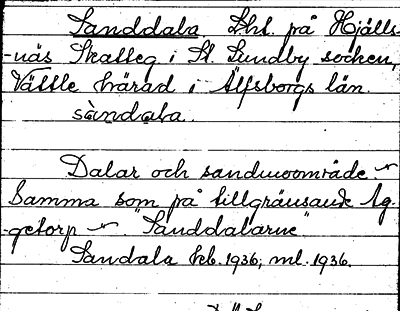 Sanddala Lht. på Hjälls-
-näs Skatteg i St. Lundby socken,
Vättle härad i Älfsborgs län.
sàndala.
Dalar och sandmoområde.
Samma som på tillgränsande Ag-
getorp "Sanddalarne"
Sandala kb. 1936; ml. 1936.